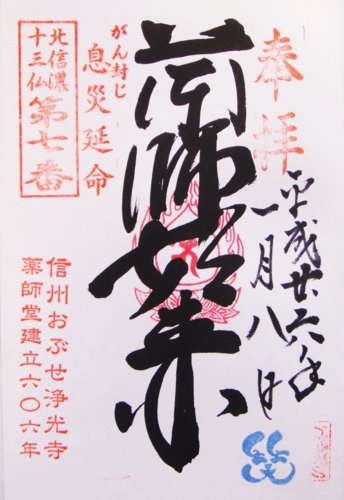 奉拝
平成廿六年
一月八日
薬師如来
がん封じ
息災延命
北信濃
十三仏
第七番
信州おぶせ浄光寺
薬師堂建立六〇六年
笑